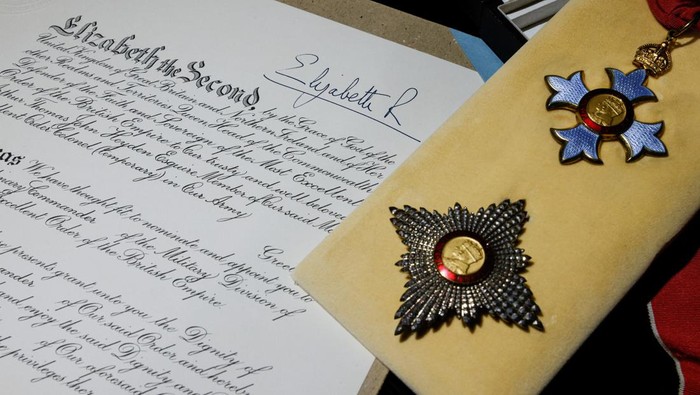 Elizabeth the Second,
Elizabeth R
by the Grace of God of the
United Kingdom of Great Britain and Northern Ireland and of Her
other Realms and Territories Queen, Head of the Commonwealth,
Defender of the Faith and Sovereign of the Most Excellent
Order of the British Empire to Our trusty and well beloved
Thomas John Heydon Esquire Member of Our said
Order Colonel (temporary) in Our Army
as We have thought fit to nominate and appoint you to
nary Commander of the Military Division of
xcellent Order of the British Empire
presents grant unto you the Dignity of
ander of Our said Order and hereby
and enjoy the said Dignity and
of Our aforesaid
privileges there